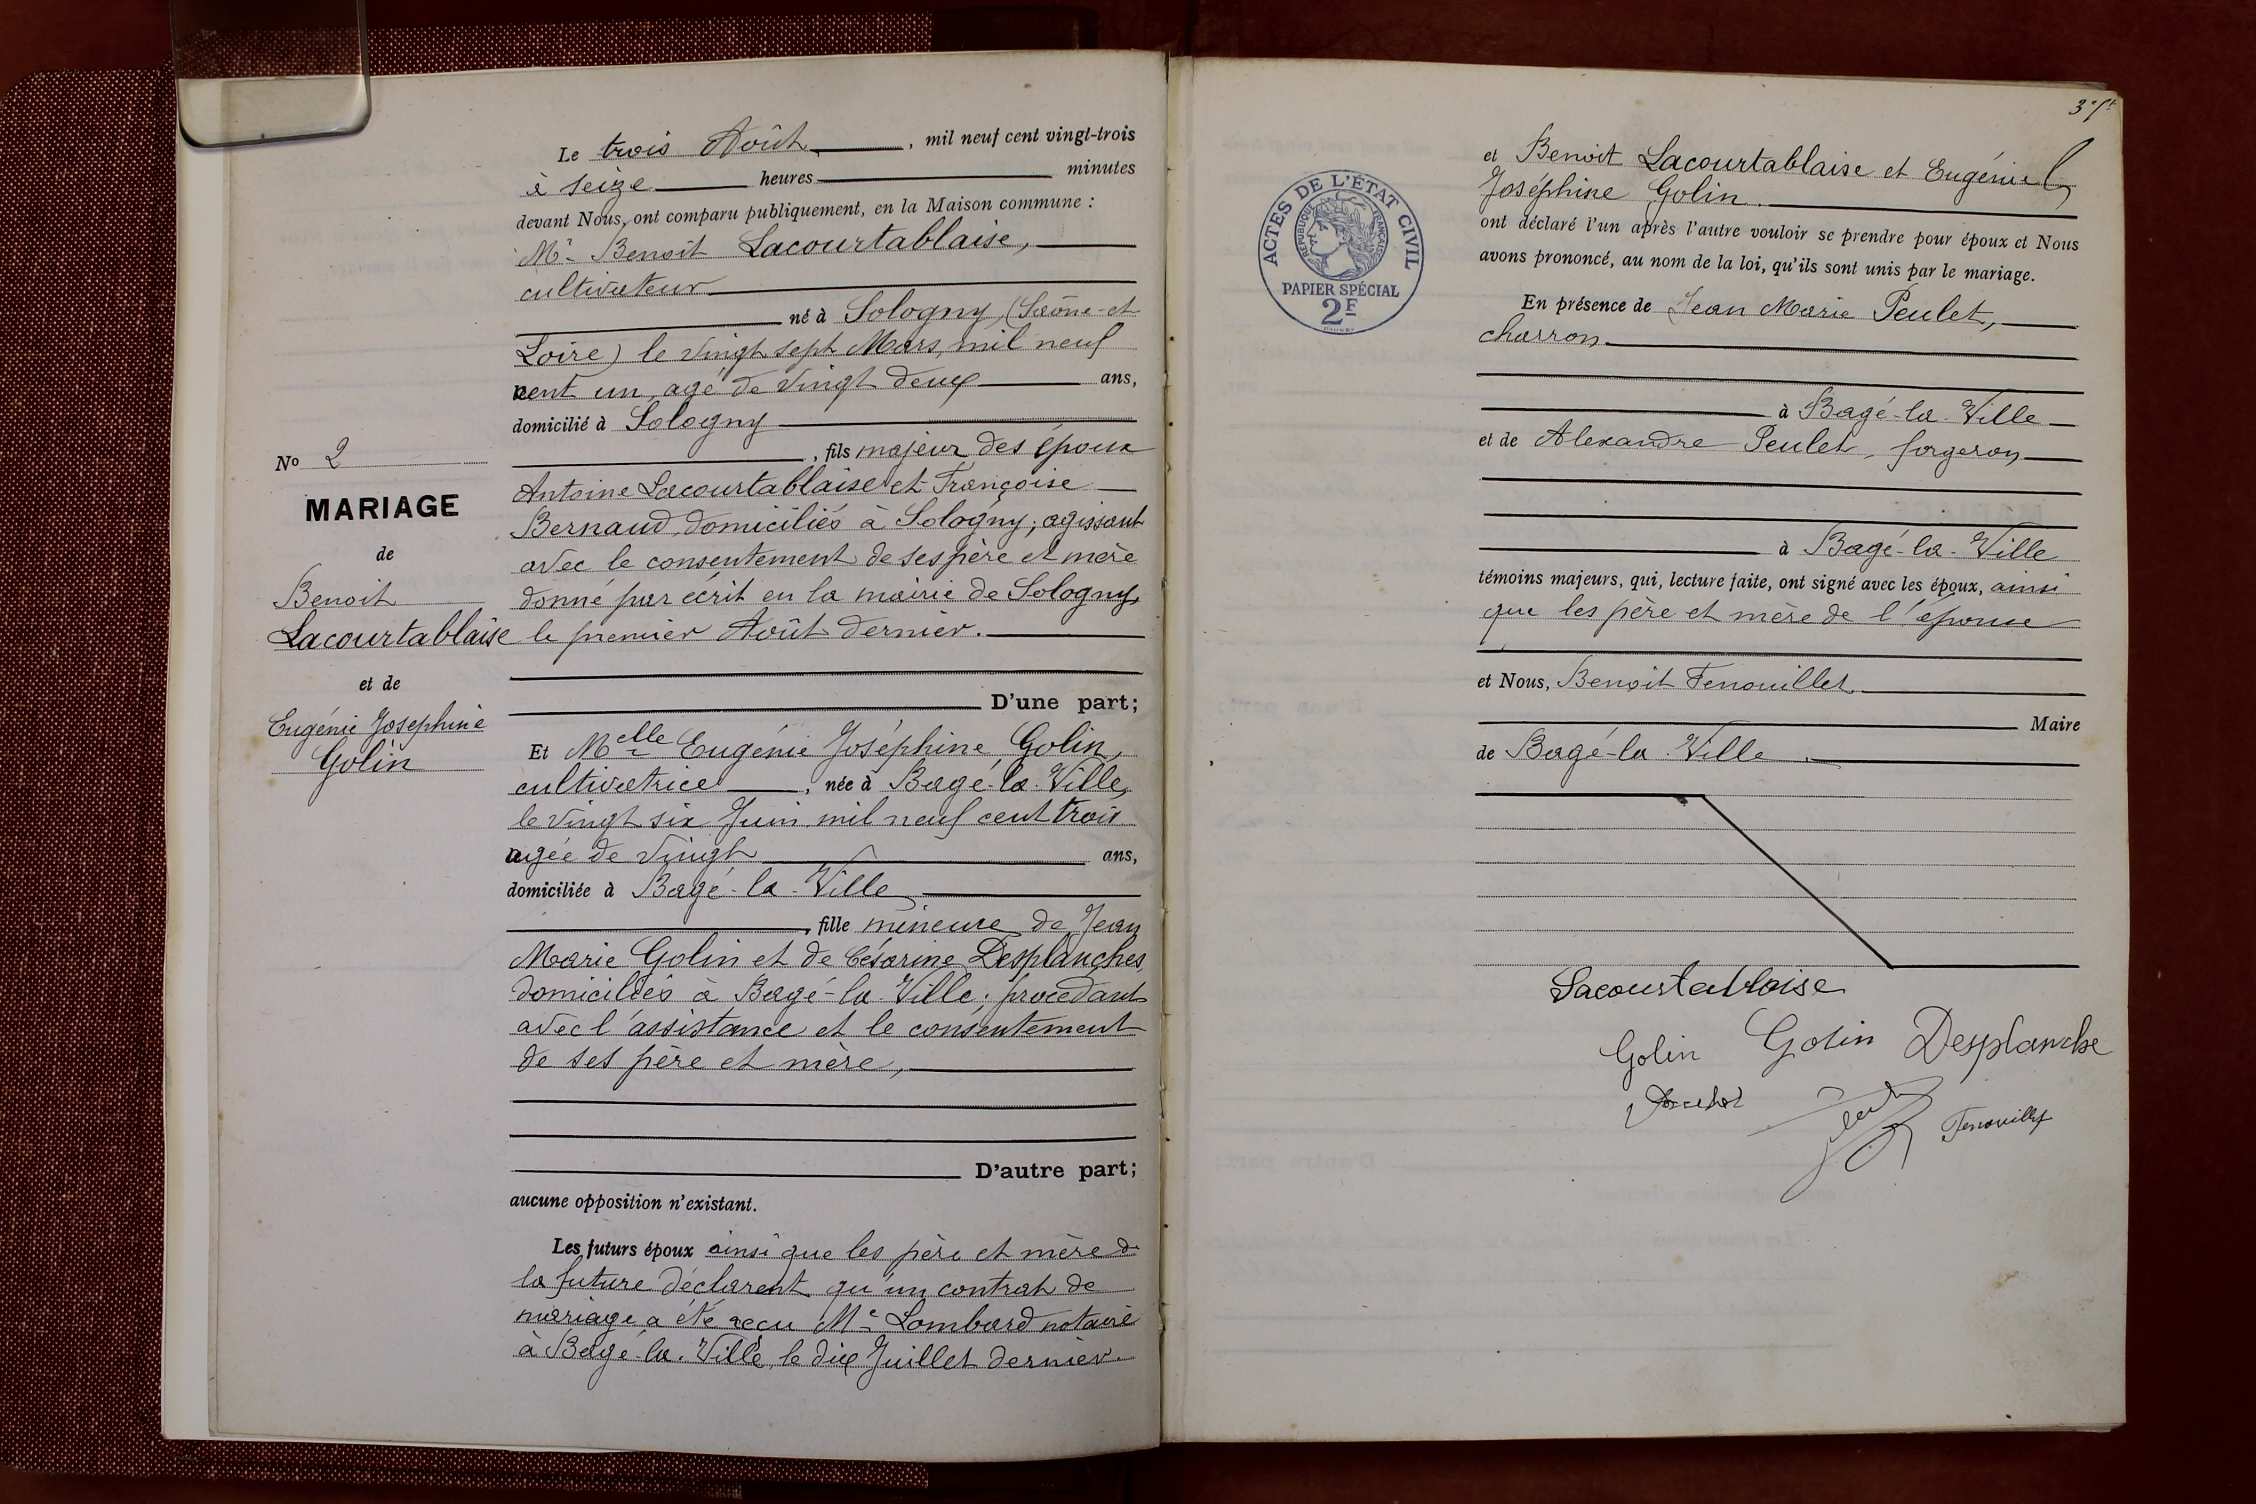 Le trois Août, mil neuf cent vingt-trois
à seize heures minutes
devant Nous, ont comparu publiquement, en la Maison commune :
Mr Benoit Lacourtablaise,
cultivateur
né à Sologny, (Saône-et
Loire) le vingt sept Mars, mil neuf
cent un, agé de vingt deux ans,
domicilié à Sologny
, fils majeur des époux
Antoine Lacourtablaise et Françoise
Bernaud, domiciliés à Sologny; agissant
avec le consentement de ses père et mère
donné par écrit en la mairie de Sologny,
le premier Août dernier.
D'une part;
No 2
MARIAGE
de
Benoit
Lacourtablaise
et de
Eugénie Josephine
Golin
Et Melle Eugénie Joséphine Golin,
cultivatrice, née à Bagé-la-Ville,
le vingt six Juin mil neuf cent trois
agée de vingt ans,
domiciliée à Bagé-la-Ville
, fille mineure de Jean
Marie Golin et de Césarine Desplanches,
domiciliés à Bagé-la-Ville; procédant
avec l'assistance et le consentement
de ses père et mère,
D'autre part;
aucune opposition n'existant.
Les futurs époux ainsi que les père et mère de
la future déclarent qu'un contrat de
mariage a été reçu Me Lombard notaire
à Bagé-la-Ville, le dix Juillet dernier.
et Benoit Lacourtablaise et Eugénie
Joséphine Golin.
ont déclaré l'un après l'autre vouloir se prendre pour époux et Nous
avons prononcé, au nom de la loi, qu'ils sont unis par le mariage.
En présence de Jean Marie Peulet,
charron
à Bagé-la-Ville
et de Alexandre Peulet, forgeron
à Bagé-la-Ville
témoins majeurs, qui, lecture faite, ont signé avec les époux, ainsi
que les père et mère de l'épouse
et Nous, Benoit Fenouillet
Maire
de Bagé-la-Ville.
ACTES DE L'ÉTAT CIVIL
RÉPUBLIQUE FRANÇAISE
PAPIER SPÉCIAL
2F
Lacourtablaise
Golin Golin Desplanche
Fenouillet